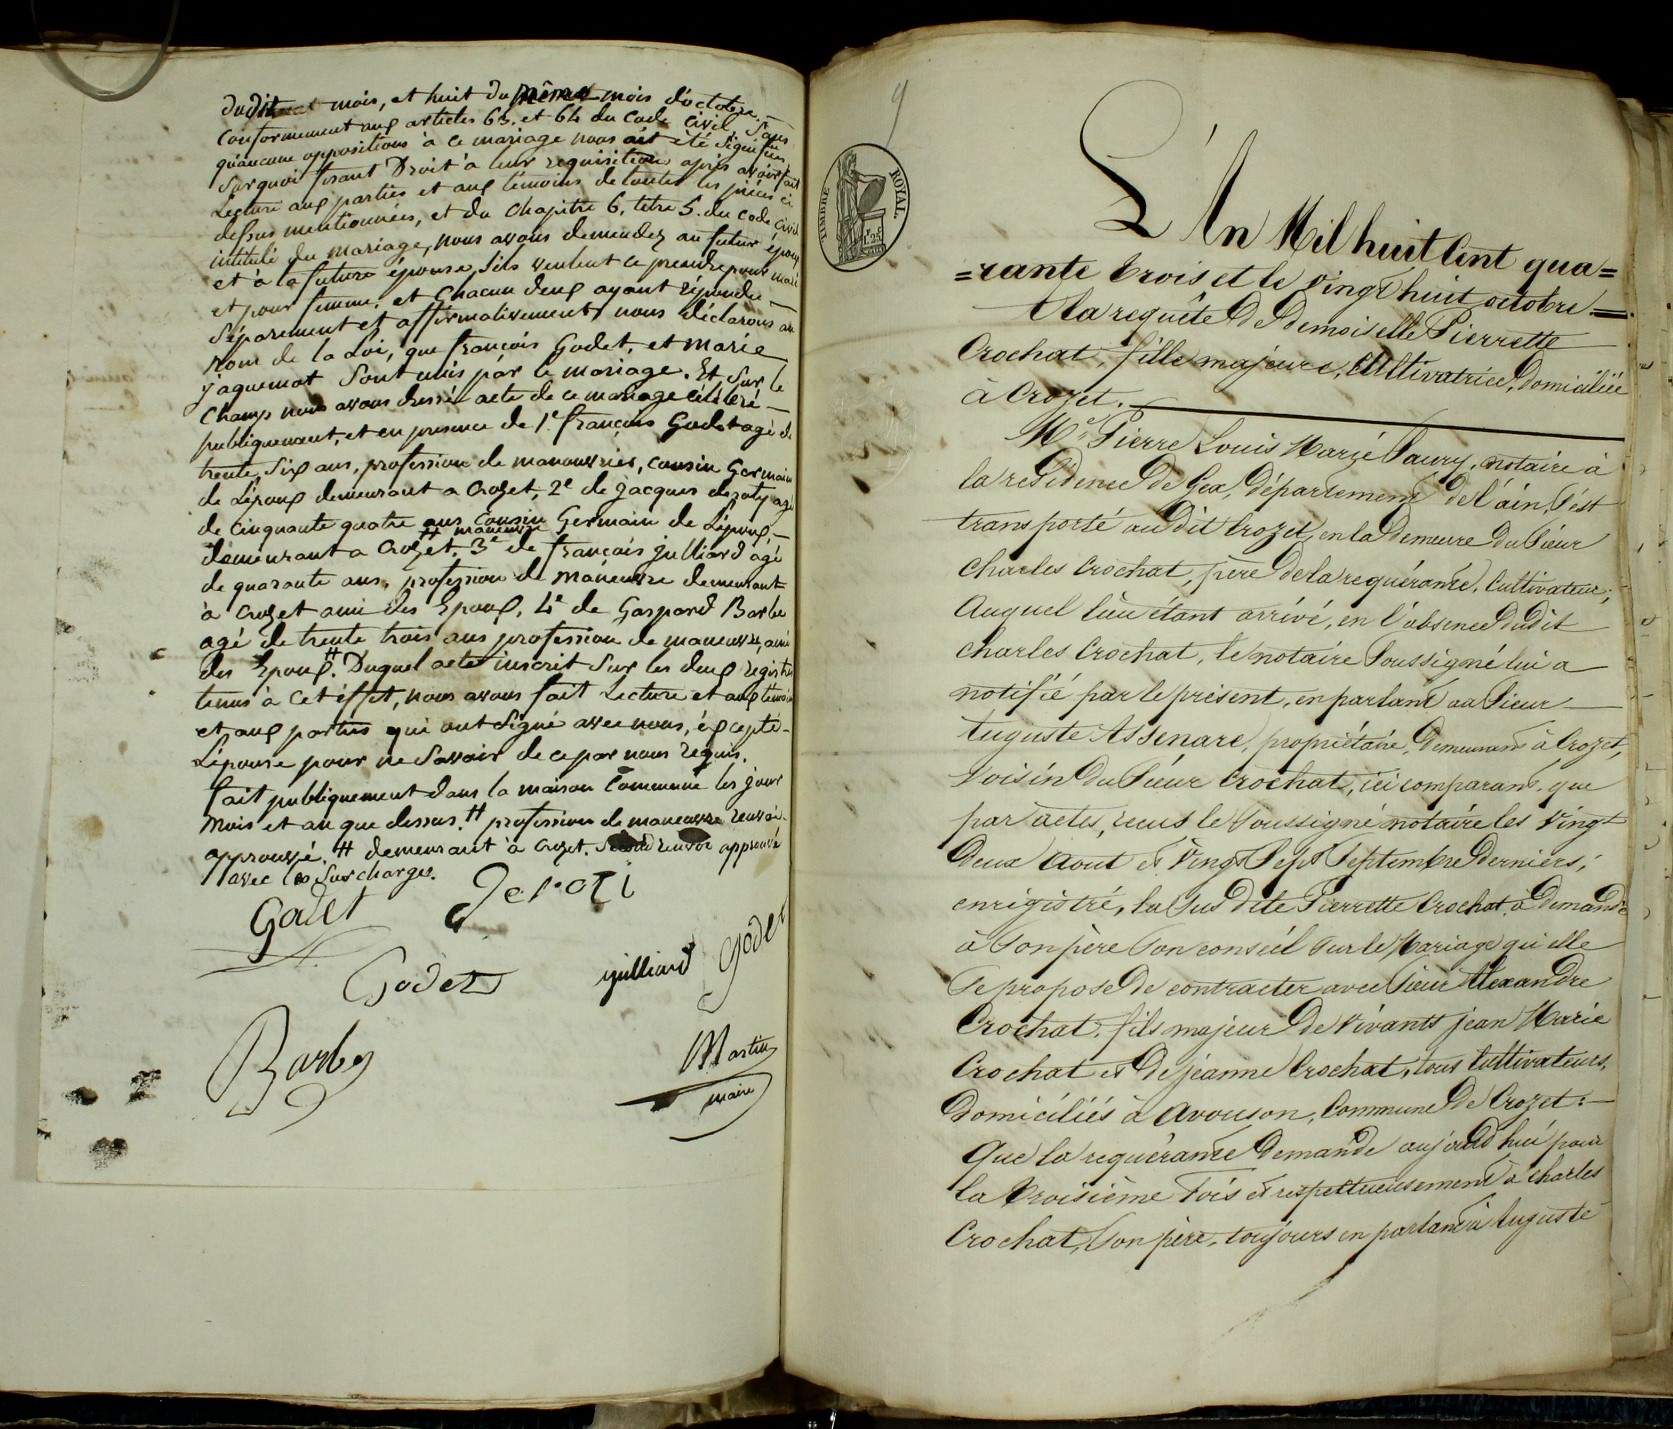 dudit mois, et huit du même mois d'octobre,
Conformement aux articles 63. et 64 du Code Civil Sans
qu'aucune oppositions à ce mariage nous ait été Signifiée
Surquoi fisant Droit à leur requisition après avoir fait
Lecture aux parties et aux témoins de toutes les pièces ci
dessus mentionnées, et du Chapitre 6, titre 5. du Code Civil
intitulé du mariage, nous avons demandez au futur époux
et à la future épouse, Sils veulent ce prendre pour mari
et pour femme, et Chacun deux ayant repondu
Séparement et affirmativement nous déclarons au
Nom de la Loi, que françois Godet, et Marie
jaquemot Sont unis par le mariage. Et Sur le
Champ nous avons dressé acte de ce mariage célébré
publiquement, et en presence de 1.e françois Godet agé de
trente Six ans, profession de manouvrier, Cousin Germain
de Lépoux demeurant a Crozet, 2e de jacques derotz agé
de Cinquante quatre ans Cousin Germain de Lépoux,
demeurant a Crozet. # maneuvre 3e de françois julliard agé
de quarante ans, profession de maneuvre demeurant
à Crozet ami des Epoux, 4e de Gaspard Barbe
agé de trente trois ans profession de maneuvre, ami
des Epoux. # Duquel acte inscrit Sur les deux registres
tenus à Cet éffet, nous avons fait Lecture et aux témoins
et aux parties qui ont Signé avec nous, éxcepté
Lépouse pour ne Savoir de ce par nous requis.
fait publiquement dans la maison Commune les jour
Mois et an que dessus. # profession de maneuvre renvoi
approuvé. # demeurant à Crozet. Second renvoi approuvé
avec les Surcharges.
Godet
Derozi
Godet
julliard
Godet
Barbe
Martin
maire
9
TIMBRE
ROYAL
L'An Mil huit Cent qua=
=rante trois et le Vingt huit octobre
A la requête de Demoiselle Pierrette
Crochat, fille majeure, Cultivatrice, Domiciliée
à Crozet.
Me Pierre Louis Marié Saury, notaire à
la residence de Gex, département de l'ain, s'est
transporté au dit Crozet, en la demeure du Sieur
Charles Crochat, père de la requérante, Cultivateur;
Auquel lieu étant arrivé, en l'absence dudit
Charles Crochat, le notaire soussigné lui a
notifié par le présent, en parlant au Sieur
Auguste Assenare, propriétaire, demeurant à Crozet,
Voisin du Sieur Crochat, ici comparant, que
par actes, reçus le soussigné notaire les Vingt
Deux Aout et Vingt Sept Septembre Derniers,
enrigistré, la Sus dite Pierrette Crochat, a demandé
à Son père Son conseil Sur le Mariage qu'elle
Se propose de contracter avec Sieur Alexandre
Crochat, fils majeur de Vivants jean Marie
Crochat et de jeanne Crochat, tous Cultivateurs,
Domiciliés à Avouson, Commune de Crozet:
Que la requérante demande aujourd'hui pour
la troisième fois et respectueusement à Charles
Crochat, Son père, toujours en parlant à Auguste